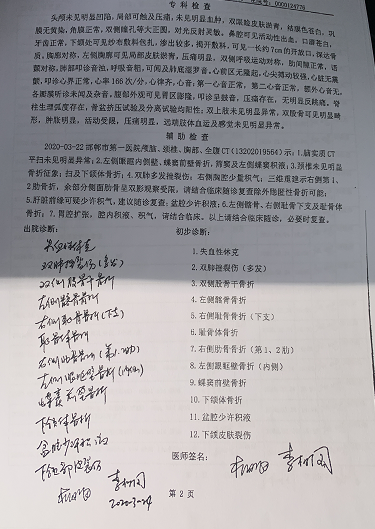 专 科 检 查
头颅未见明显凹陷，局部可触及压痛，未见明显血肿，双眼睑皮肤淤青，结膜色苍白，巩
膜无黄染，角膜正常，双侧瞳孔等大正圆，对光反射灵敏。鼻腔可见活动性出血。口唇苍白，
牙齿正常，下颌处可见纱布敷料包扎，渗出较多，揭开敷料，可见一长约7cm的开放口，深达骨
质。胸廓对称，左侧胸廓可见局部皮肤淤青，压痛明显，双侧呼吸运动对称，肋间隙正常，语
颤对称，肺部叩诊音浊，呼吸音粗，可闻及肺底湿罗音。心前区无隆起，心尖搏动较强，心脏无震
颤，叩诊心界正常，心率166次/分，心律齐，心音：第一心音正常，第二心音正常，额外心音无，
各瓣膜听诊未闻及杂音。腹部外观可见胃区膨隆，叩诊呈鼓音，压痛存在，无明显反跳痛。脊
柱生理弧度存在，骨盆挤压试验及分离试验均阳性；双上肢未见明显异常，双股骨可见明显畸
形，肿胀明显，活动受限，压痛明显，远端肢体血运及感觉未见明显异常。
辅 助 检 查
2020-03-22 邯郸市第一医院颅脑、颈椎、胸部、全腹CT(13202019564)示：1.脑实质CT
平扫未见明显异常；2.左侧眼眶内侧壁、蝶窦前壁骨折，筛窦及左侧蝶窦积液；3.颈椎未见明显
骨折征象；扫及下颌体骨折；4.双肺多发挫裂伤；右侧胸腔少量积气；三维重建示右侧第1、
2肋骨折，余部分侧面肋骨呈双影观察受限，请结合临床随诊复查除外隐匿性骨折可能；
5.肝脏前缘可疑少许积气，建议随诊复查；盆腔少许积液；6.左侧髂骨、右侧耻骨下支及骶骨体
骨折；7.胃腔扩张，腔内积液、积气，请结合临床。以上请结合临床随诊，必要时复查。
出院诊断：
初步诊断：
失血性休克
双肺挫裂伤（多发）
双侧股骨干骨折
左侧髂骨骨折
右侧耻骨骨折（下支）
骶骨体骨折
下颌体骨折
盆腔少许积液
1.失血性休克
2.双肺挫裂伤（多发）
3.双侧股骨干骨折
4.左侧髂骨骨折
5.右侧耻骨骨折（下支）
6.骶骨体骨折
7.右侧肋骨骨折（第1、2肋）
8.左侧眼眶壁骨折（内侧）
9.蝶窦前壁骨折
10.下颌体骨折
11.盆腔少许积液
12.下颌皮肤裂伤
医师签名：
第 2 页